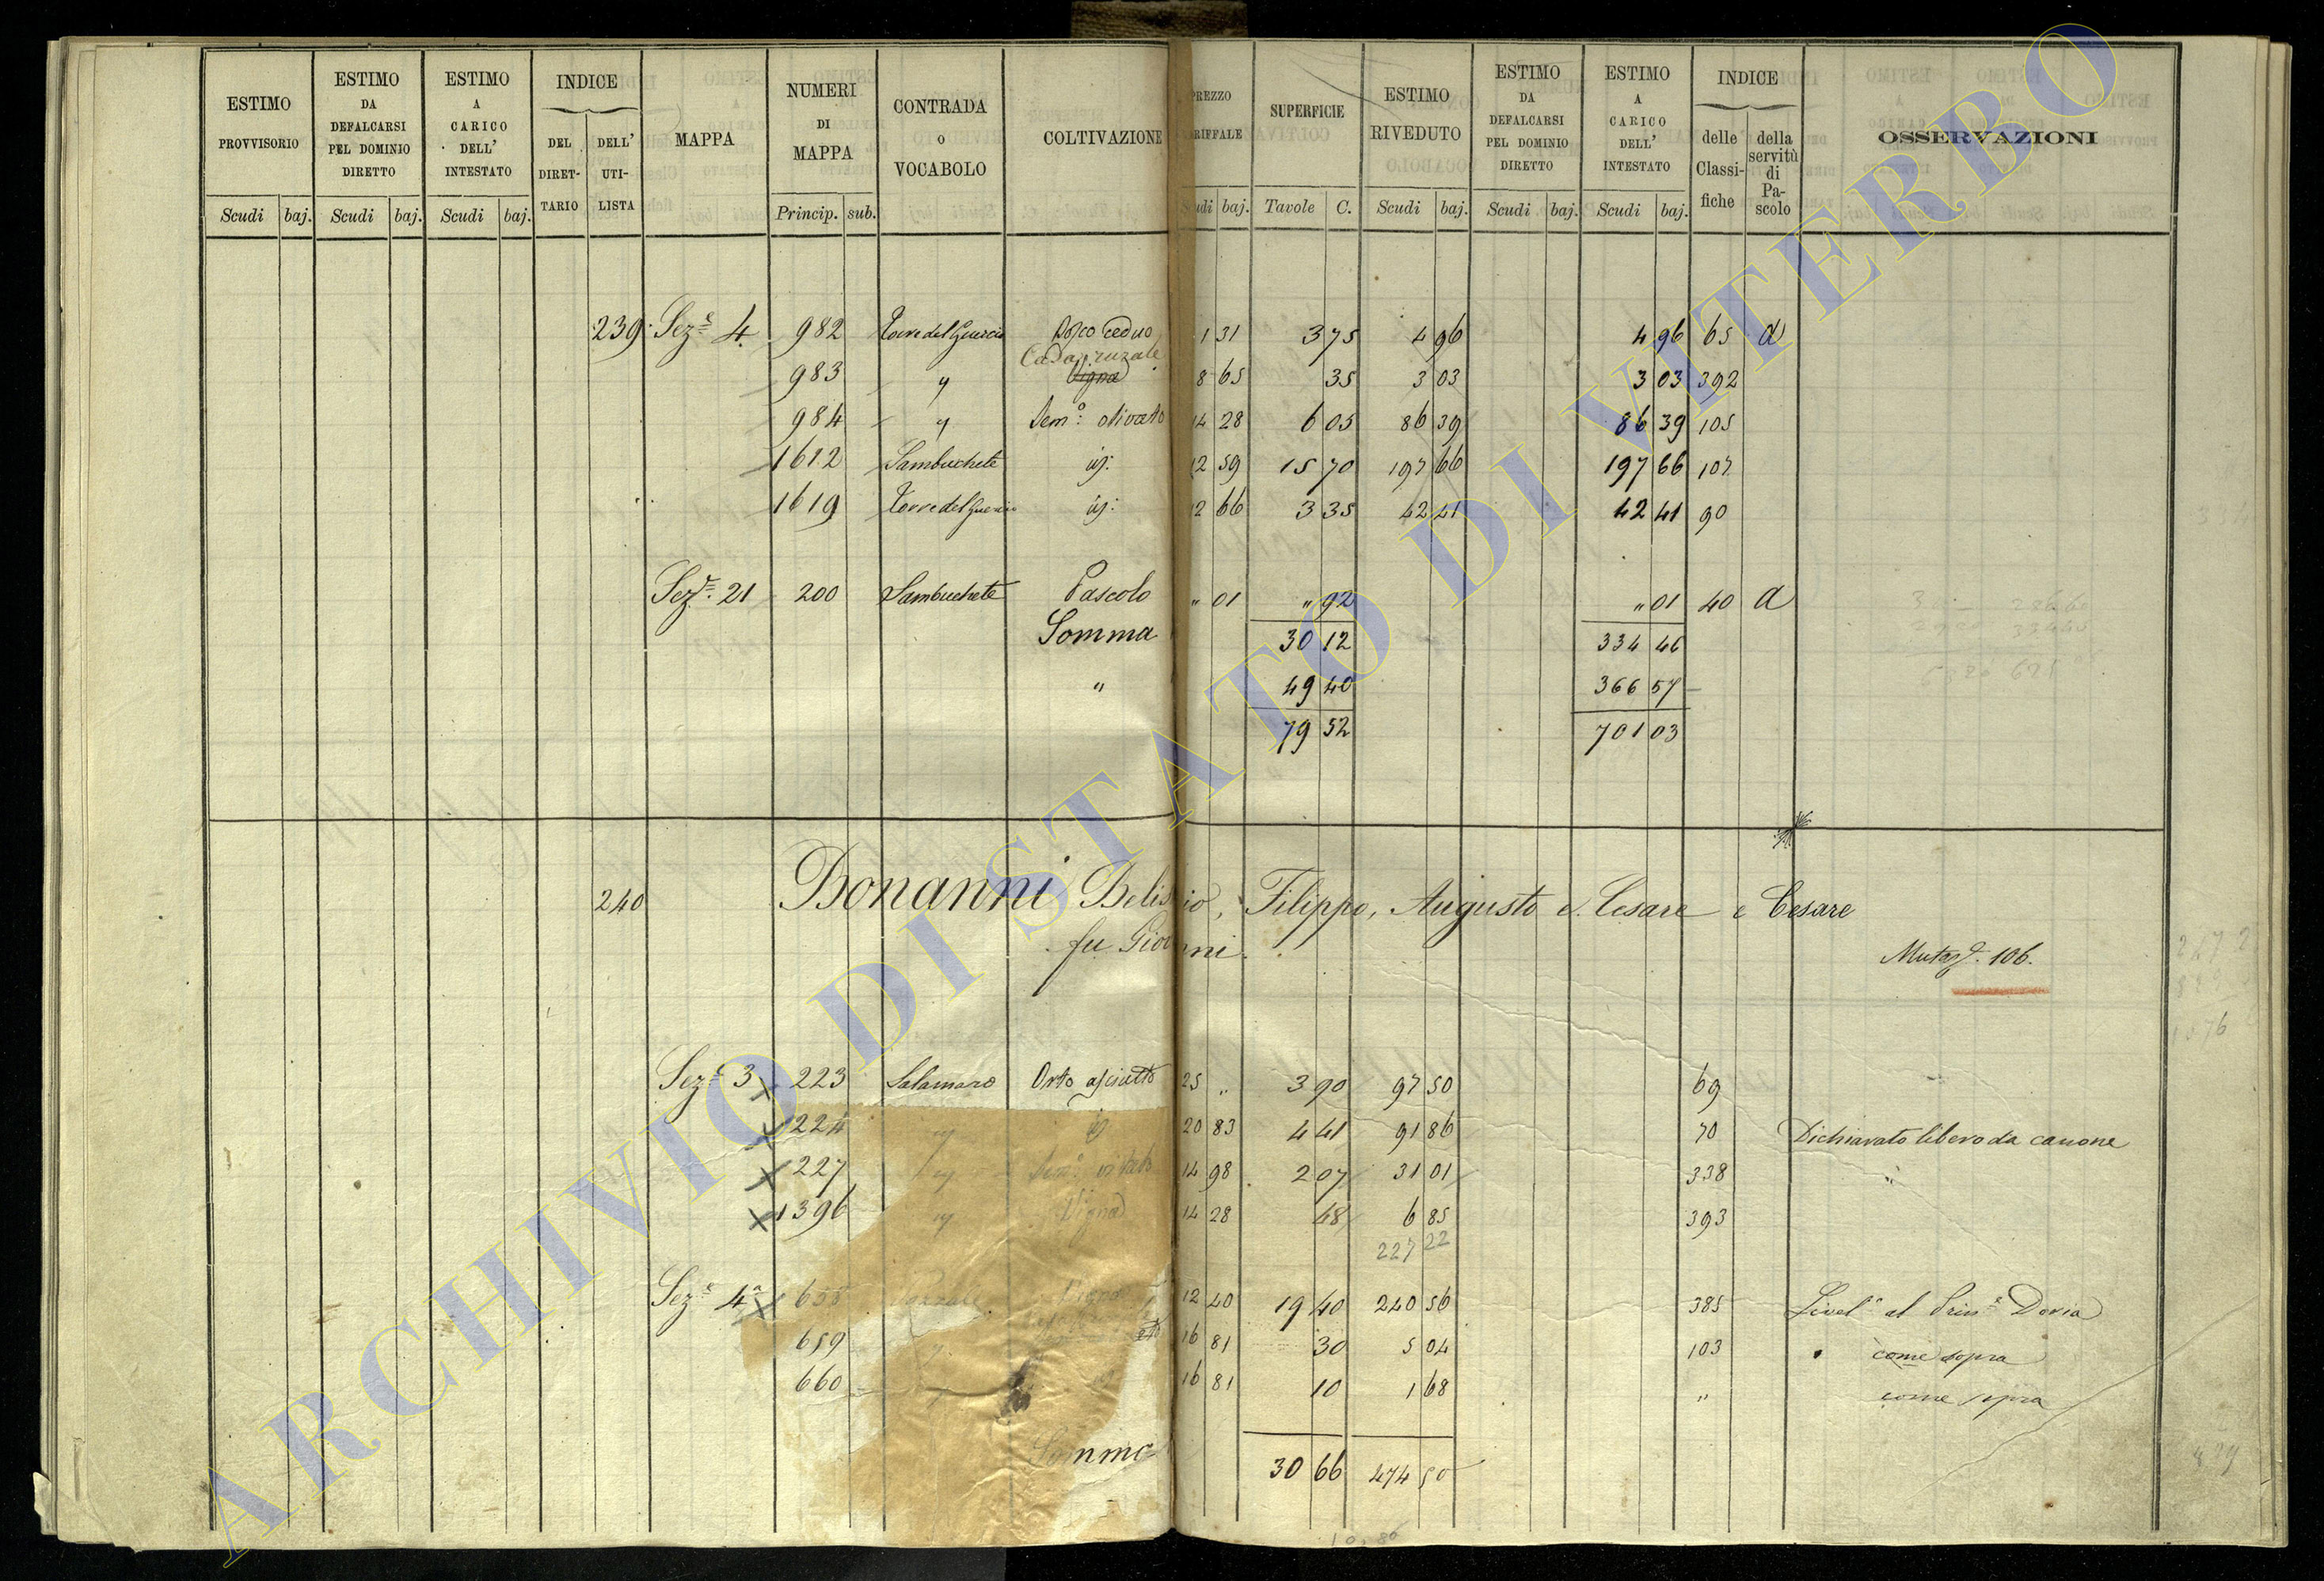 ESTIMO PROVVISORIO | ESTIMO DA DEFALCARSI PEL DOMINIO DIRETTO | ESTIMO A CARICO DELL' INTESTATO | INDICE DEL DIRET-TARIO | DELL' UTI-LISTA | MAPPA | NUMERI DI MAPPA | CONTRADA O VOCABOLO | COLTIVAZIONE | PREZZO TARIFFALE | SUPERFICIE | ESTIMO RIVEDUTO | ESTIMO DA DEFALCARSI PEL DOMINIO DIRETTO | ESTIMO A CARICO DELL' INTESTATO | INDICE delle Classi-fiche | della servitù di Pa-scolo | OSSERVAZIONI
Scudi | baj. | Scudi | baj. | Scudi | baj. | Princip. | sub. | Scudi | baj. | Tavole | C. | Scudi | baj. | Scudi | baj. | Scudi | baj.
239 Sez.e 4 982 Torre del Guercio Bosco ceduo 1 31 3 75 4 96 4 96 65 a
Casa rurale
983 " Vigna 8 65 35 3 03 3 03 392
984 " Sem.o olivato 14 28 6 05 86 39 86 39 105
1612 Sambuchete id. 12 59 15 70 197 66 197 66 107
1619 Torre del Guercio id. 12 66 3 35 42 41 42 41 90
Sez.e 21 200 Sambuchete Pascolo " 01 " 92 " 01 40 a
Somma 30 12 334 46
" 49 40 366 57
79 52 701 03
240 Bonanni Belisario, Filippo, Augusto e Cesare e Cesare
fu Giovanni.
Mutaz.e 106.
Sez.e 3 223 Salamaro Orto asciutto 25 " 3 90 97 50 69
224 " id 20 83 4 41 91 86 70 Dichiarato libero da canone
227 " Sem.o vitato 14 98 2 07 31 01 338 "
1396 " Vigna 14 28 48 6 85 393
227 22
Sez.e 4a 658 Vigna 12 40 19 40 240 56 385 Livel.o al Prin.e Doria
659 " 16 81 30 5 04 103 come sopra
660 " id 16 81 10 1 68 " come sopra
Somma 30 66 474 50
ARCHIVIO DI STATO DI VITERBO